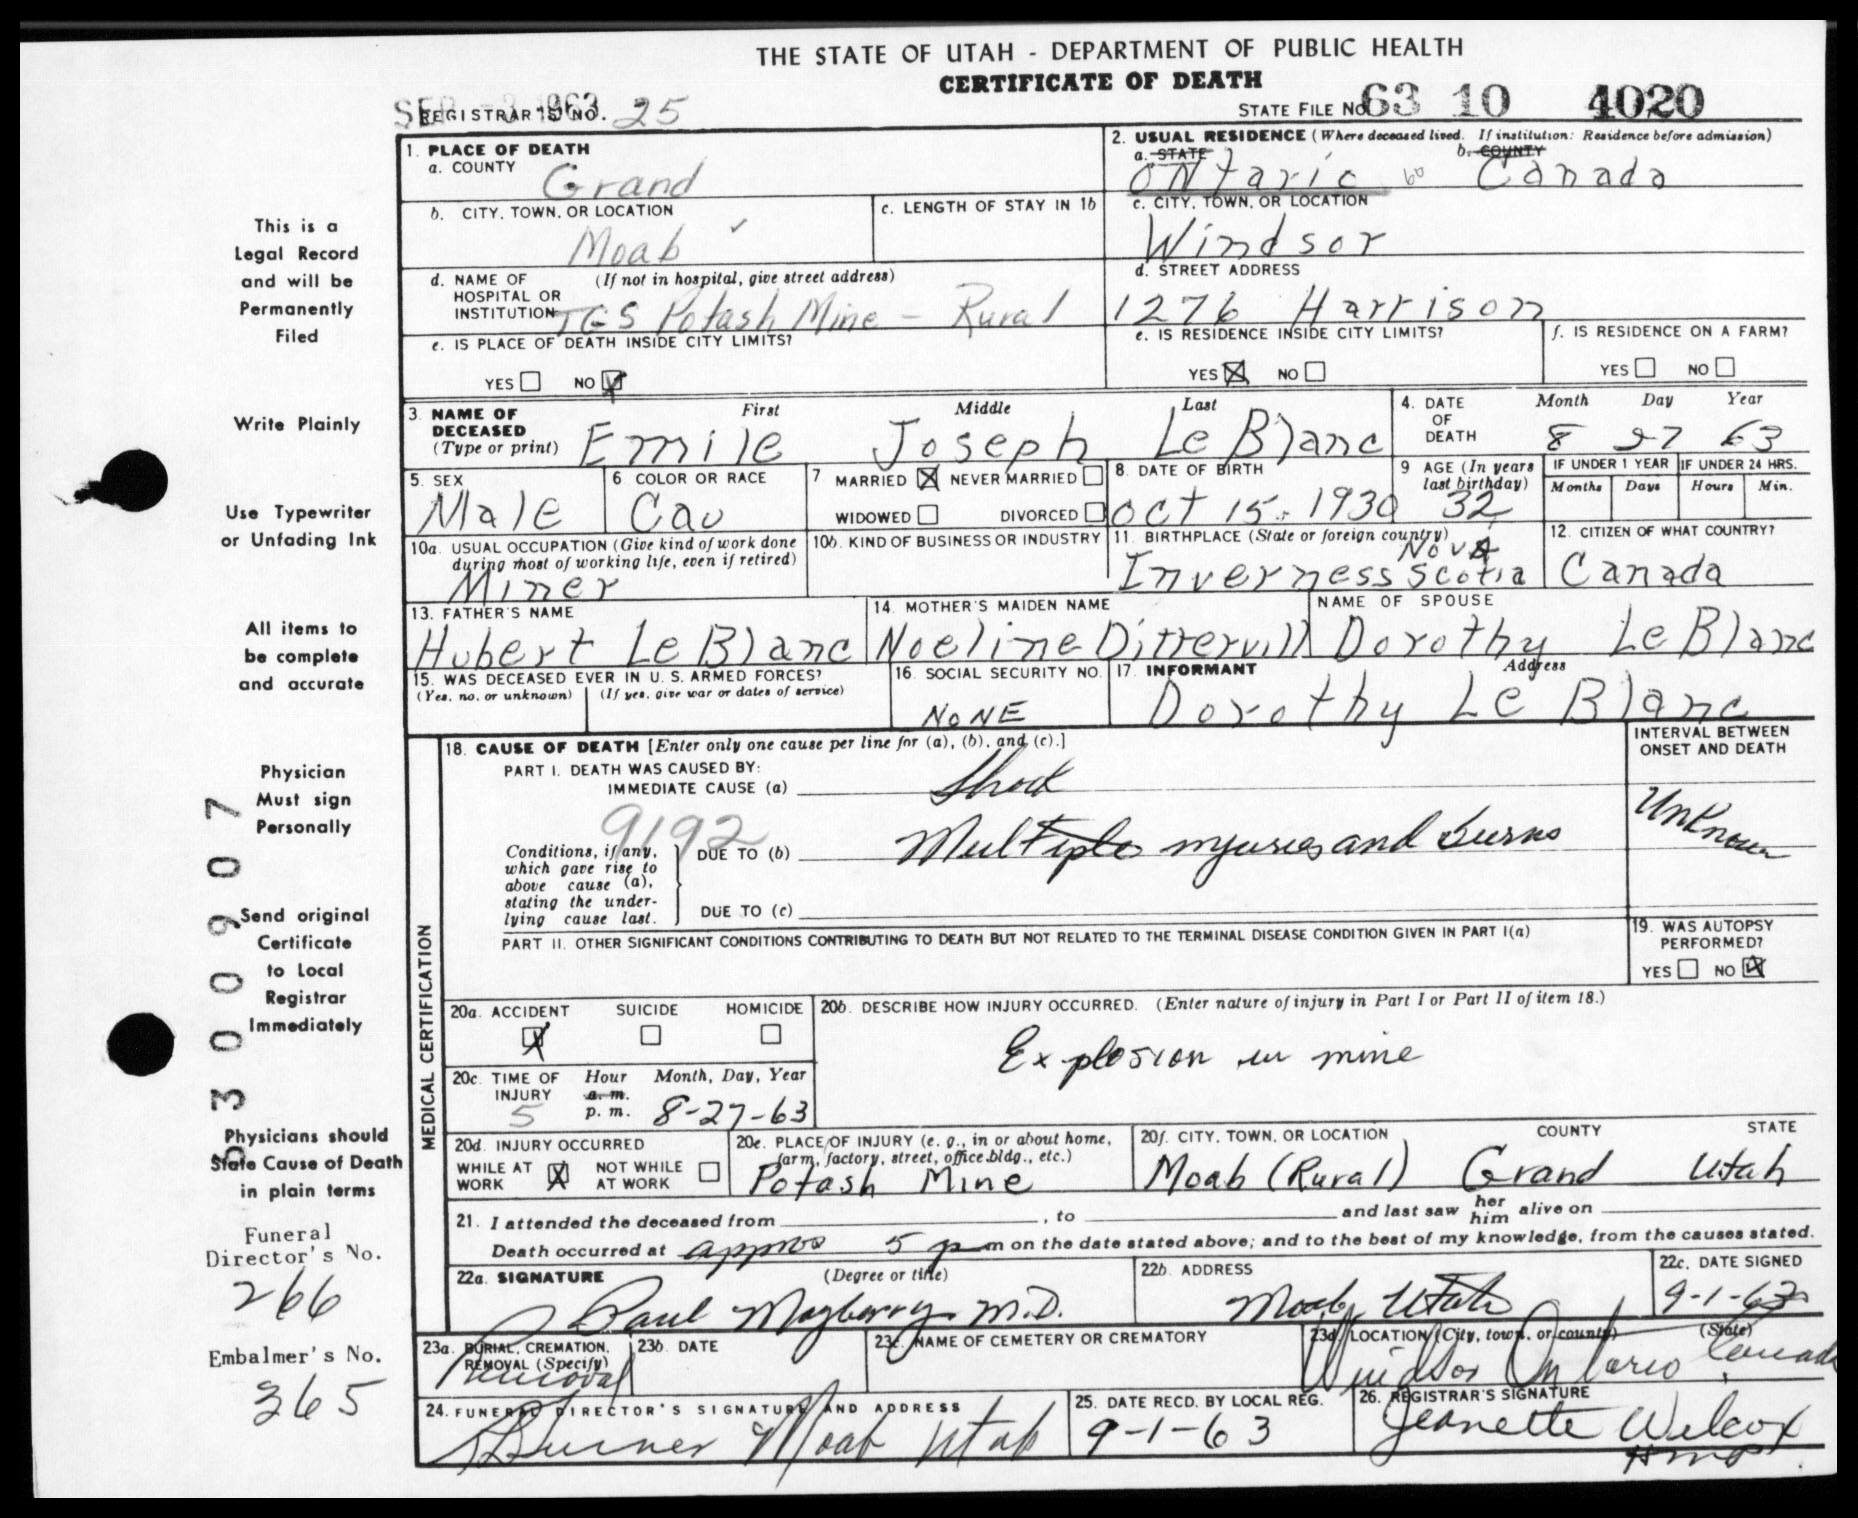 THE STATE OF UTAH - DEPARTMENT OF PUBLIC HEALTH
CERTIFICATE OF DEATH
SEP -3 1963
REGISTRAR'S NO. 25
STATE FILE NO. 63 10 4020
This is a
Legal Record
and will be
Permanently
Filed
Write Plainly
Use Typewriter
or Unfading Ink
All items to
be complete
and accurate
Physician
Must sign
Personally
Send original
Certificate
to Local
Registrar
Immediately
Physicians should
State Cause of Death
in plain terms
Funeral
Director's No.
266
Embalmer's No.
365
6300907
1. PLACE OF DEATH
a. COUNTY
Grand
2. USUAL RESIDENCE (Where deceased lived. If institution: Residence before admission)
a. STATE b. COUNTY
Ontario 60 Canada
b. CITY, TOWN, OR LOCATION
Moab ✓
c. LENGTH OF STAY IN 1b
c. CITY, TOWN, OR LOCATION
Windsor
d. NAME OF HOSPITAL OR INSTITUTION (If not in hospital, give street address)
TGS Potash Mine - Rural
d. STREET ADDRESS
1276 Harrison
e. IS PLACE OF DEATH INSIDE CITY LIMITS?
YES ☐ NO ☒
e. IS RESIDENCE INSIDE CITY LIMITS?
YES ☒ NO ☐
f. IS RESIDENCE ON A FARM?
YES ☐ NO ☐
3. NAME OF DECEASED (Type or print)
First Middle Last
Emile Joseph Le Blanc
4. DATE OF DEATH Month Day Year
8 27 63
5. SEX
Male
6 COLOR OR RACE
Cau
7 MARRIED ☒ NEVER MARRIED ☐
WIDOWED ☐ DIVORCED ☐
8. DATE OF BIRTH
Oct 15, 1930
9 AGE (In years last birthday)
32
IF UNDER 1 YEAR
Months Days
IF UNDER 24 HRS.
Hours Min.
10a. USUAL OCCUPATION (Give kind of work done during most of working life, even if retired)
Miner
10b. KIND OF BUSINESS OR INDUSTRY
11. BIRTHPLACE (State or foreign country)
Inverness Nova Scotia
12. CITIZEN OF WHAT COUNTRY?
Canada
13. FATHER'S NAME
Hubert Le Blanc
14. MOTHER'S MAIDEN NAME
Noeline Dittervill
NAME OF SPOUSE
Dorothy Le Blanc
15. WAS DECEASED EVER IN U. S. ARMED FORCES?
(Yes, no, or unknown) (If yes, give war or dates of service)
16. SOCIAL SECURITY NO.
NONE
17. INFORMANT Address
Dorothy Le Blanc
MEDICAL CERTIFICATION
18. CAUSE OF DEATH [Enter only one cause per line for (a), (b), and (c).]
INTERVAL BETWEEN ONSET AND DEATH
PART I. DEATH WAS CAUSED BY:
IMMEDIATE CAUSE (a) Shock
Unknown
9192
Conditions, if any, which gave rise to above cause (a), stating the underlying cause last.
DUE TO (b) Multiple injuries and burns
DUE TO (c)
PART II. OTHER SIGNIFICANT CONDITIONS CONTRIBUTING TO DEATH BUT NOT RELATED TO THE TERMINAL DISEASE CONDITION GIVEN IN PART I(a)
19. WAS AUTOPSY PERFORMED?
YES ☐ NO ☒
20a. ACCIDENT SUICIDE HOMICIDE
☒ ☐ ☐
20b. DESCRIBE HOW INJURY OCCURRED. (Enter nature of injury in Part I or Part II of item 18.)
Explosion in mine
20c. TIME OF INJURY Hour Month, Day, Year
5 a. m. p. m. 8-27-63
20d. INJURY OCCURRED
WHILE AT WORK ☒ NOT WHILE AT WORK ☐
20e. PLACE OF INJURY (e. g., in or about home, farm, factory, street, office bldg., etc.)
Potash Mine
20f. CITY, TOWN, OR LOCATION COUNTY STATE
Moab (Rural) Grand Utah
21. I attended the deceased from , to and last saw her him alive on
Death occurred at approx 5 p m on the date stated above; and to the best of my knowledge, from the causes stated.
22a. SIGNATURE (Degree or title)
Paul Mayberry M.D.
22b. ADDRESS
Moab, Utah
22c. DATE SIGNED
9-1-63
23a. BURIAL, CREMATION, REMOVAL (Specify)
Removal
23b. DATE
23c. NAME OF CEMETERY OR CREMATORY
23d. LOCATION (City, town, or county) (State)
Windsor Ontario, Canada
24. FUNERAL DIRECTOR'S SIGNATURE AND ADDRESS
Moab Utah
25. DATE RECD. BY LOCAL REG.
9-1-63
26. REGISTRAR'S SIGNATURE
Jeanette Wilcox